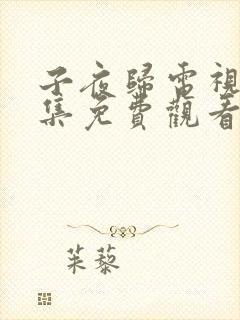 子夜歸電視
集免費觀看
茱藜